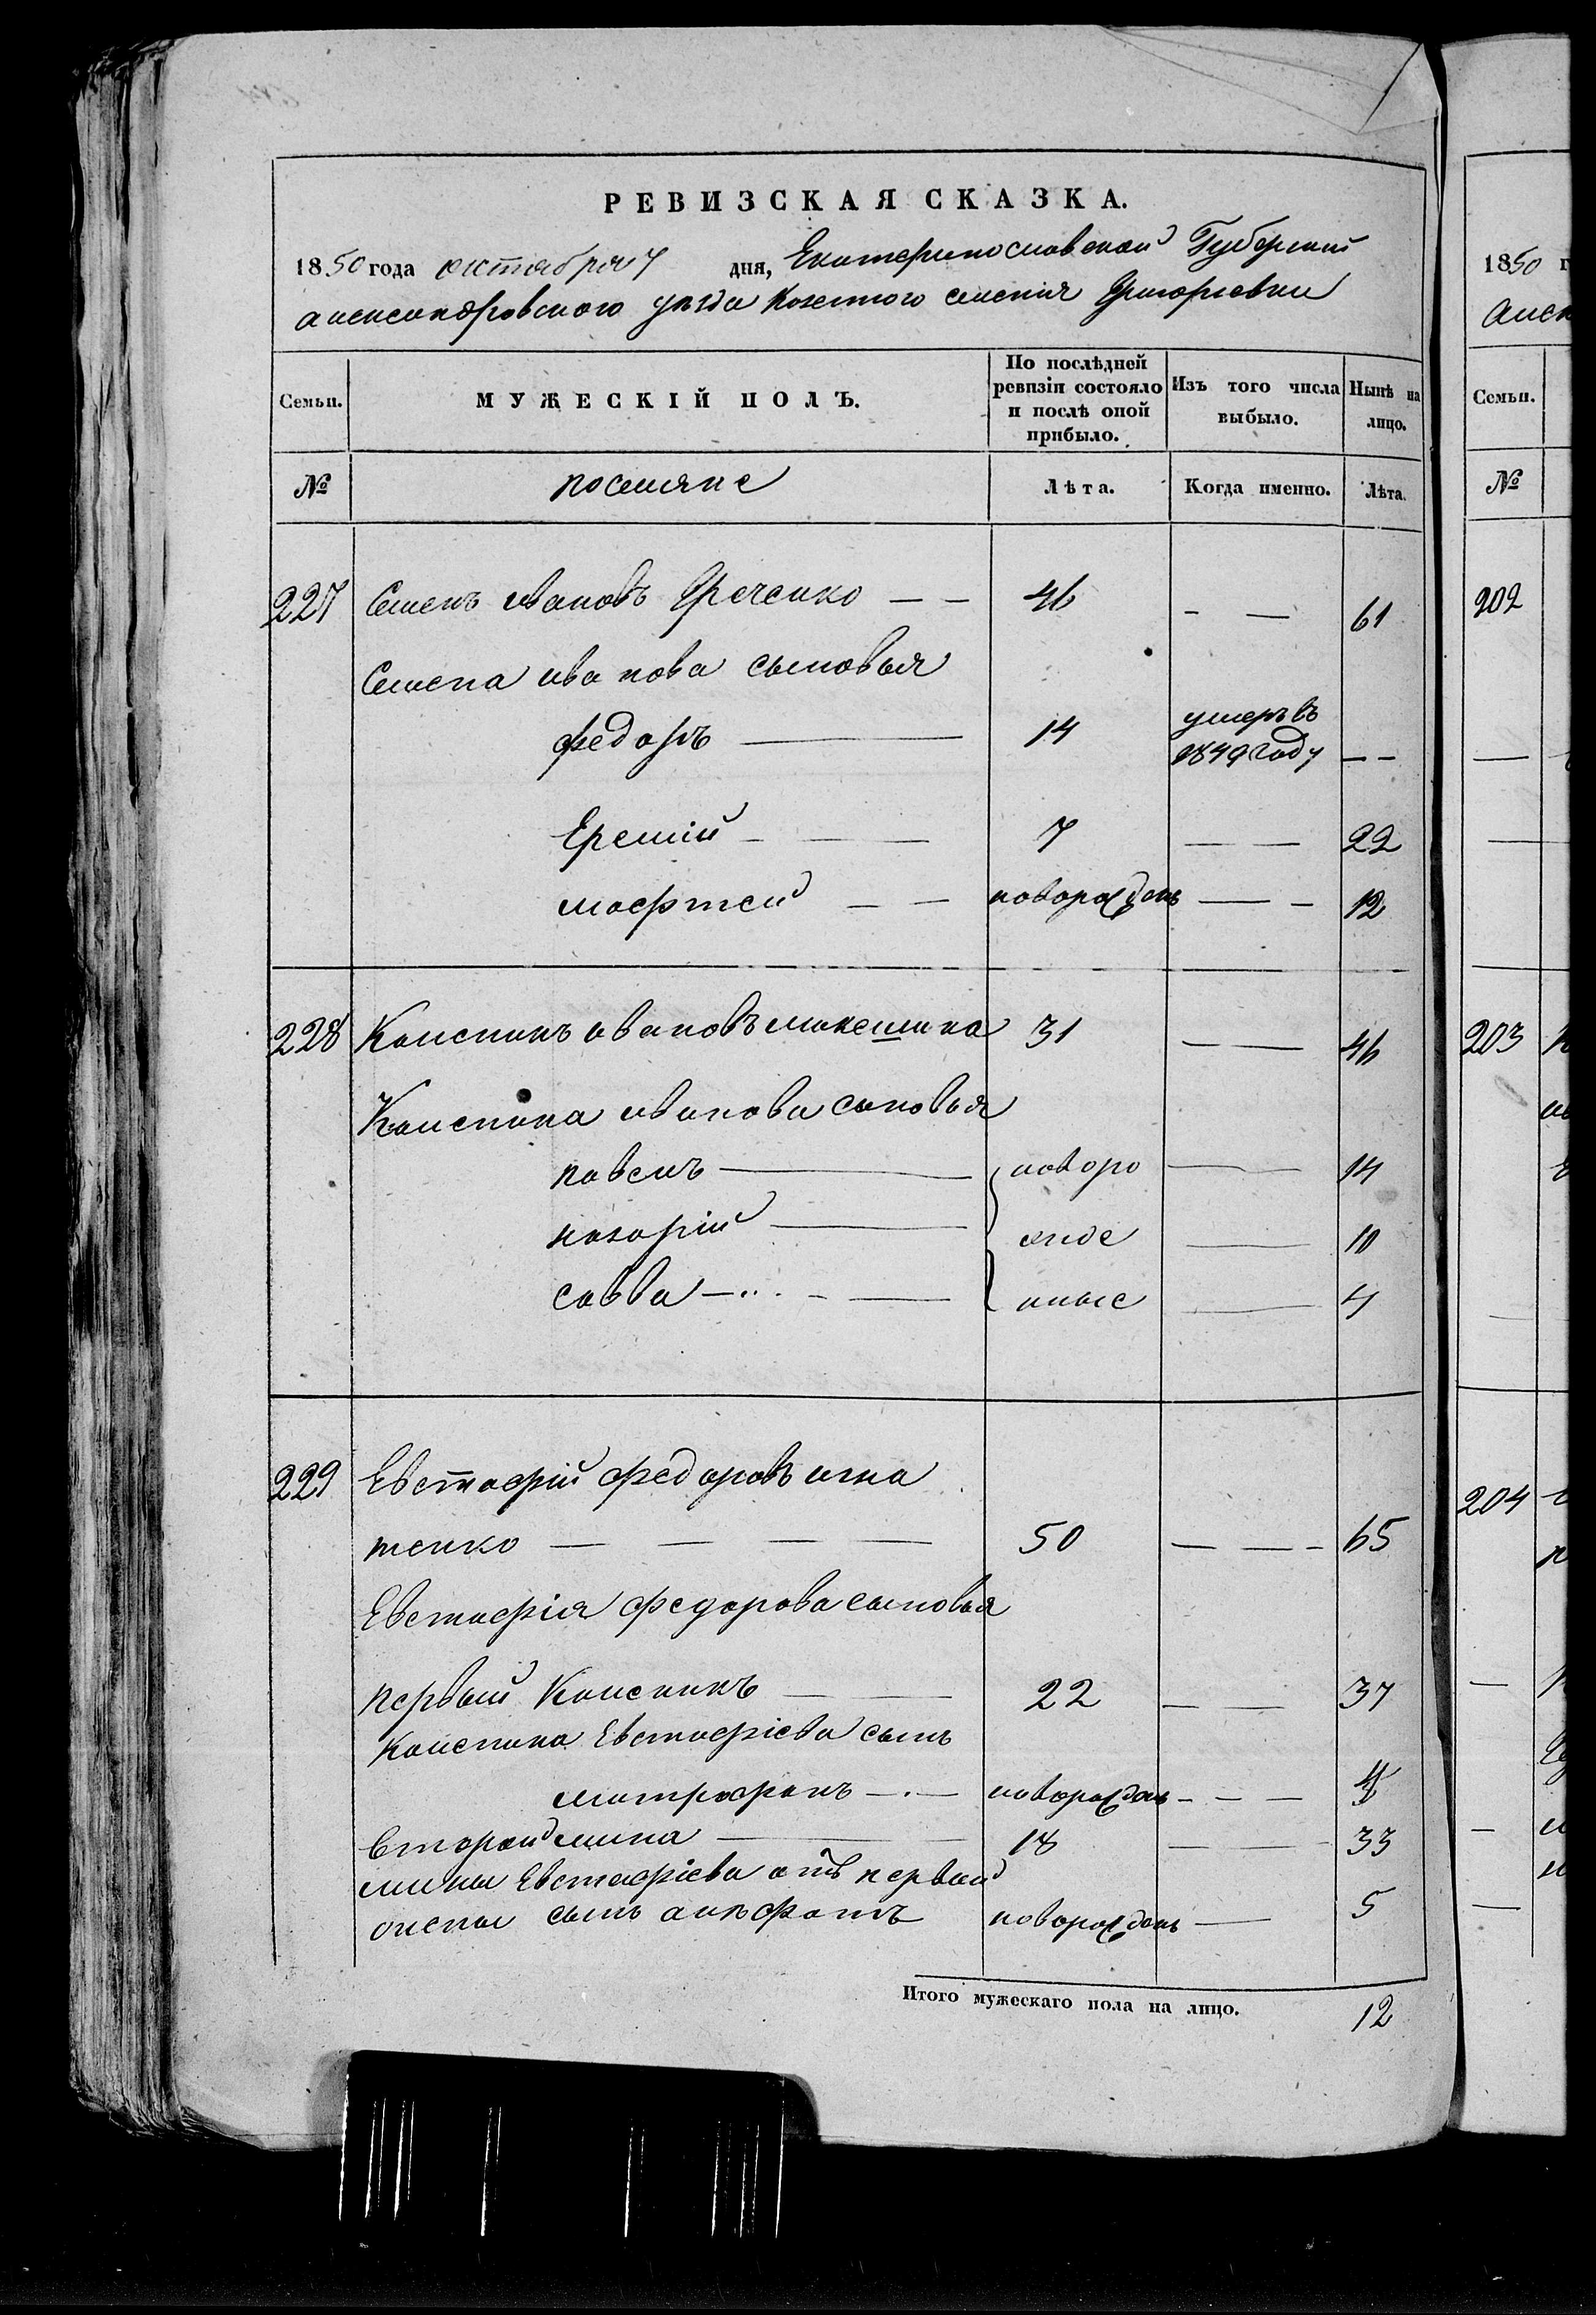 РЕВИЗСКАЯ СКАЗКА.
1850 года октября 7 дня, Екатеринославской Губерніи
александровского уѣзда Козенного селенія Григорьевки
Семьи.
МУЖЕСКІЙ ПОЛЪ.
По послѣдней ревизіи состояло и послѣ оной прибыло.
Изъ того числа выбыло.
Нынѣ на лицо.
№
поселяне
Лѣта.
Когда именно.
Лѣта.
227 Семенъ ивановъ Греченко — — 46 — — 61
Семена иванова сыновья
федоръ — 14 умеръ въ 1849 году — —
Еремій — — 7 — — 22
мосфтей — — новорожденъ — — 12
228 Калсникъ ивановъ 31 — — 46
Калсника иванова сыновья
павелъ — новоро — 14
назарій — жде — 10
савва — нные — 4
229 Евстафій федоровъ игна
тенко — — — — 50 — — — 65
Евстафія федорова сыновья
первый Калсникъ — — 22 — — 37
Калсника Евстафіева сынъ
митрофанъ — новорожденъ — — —
второй мина — 18 — 33
мины Евстафіева отъ первой
жены сынъ новорожденъ — 5
Итого мужескаго пола на лицо. 12
1850 г
Алек
Семьи.
№
202
203
204